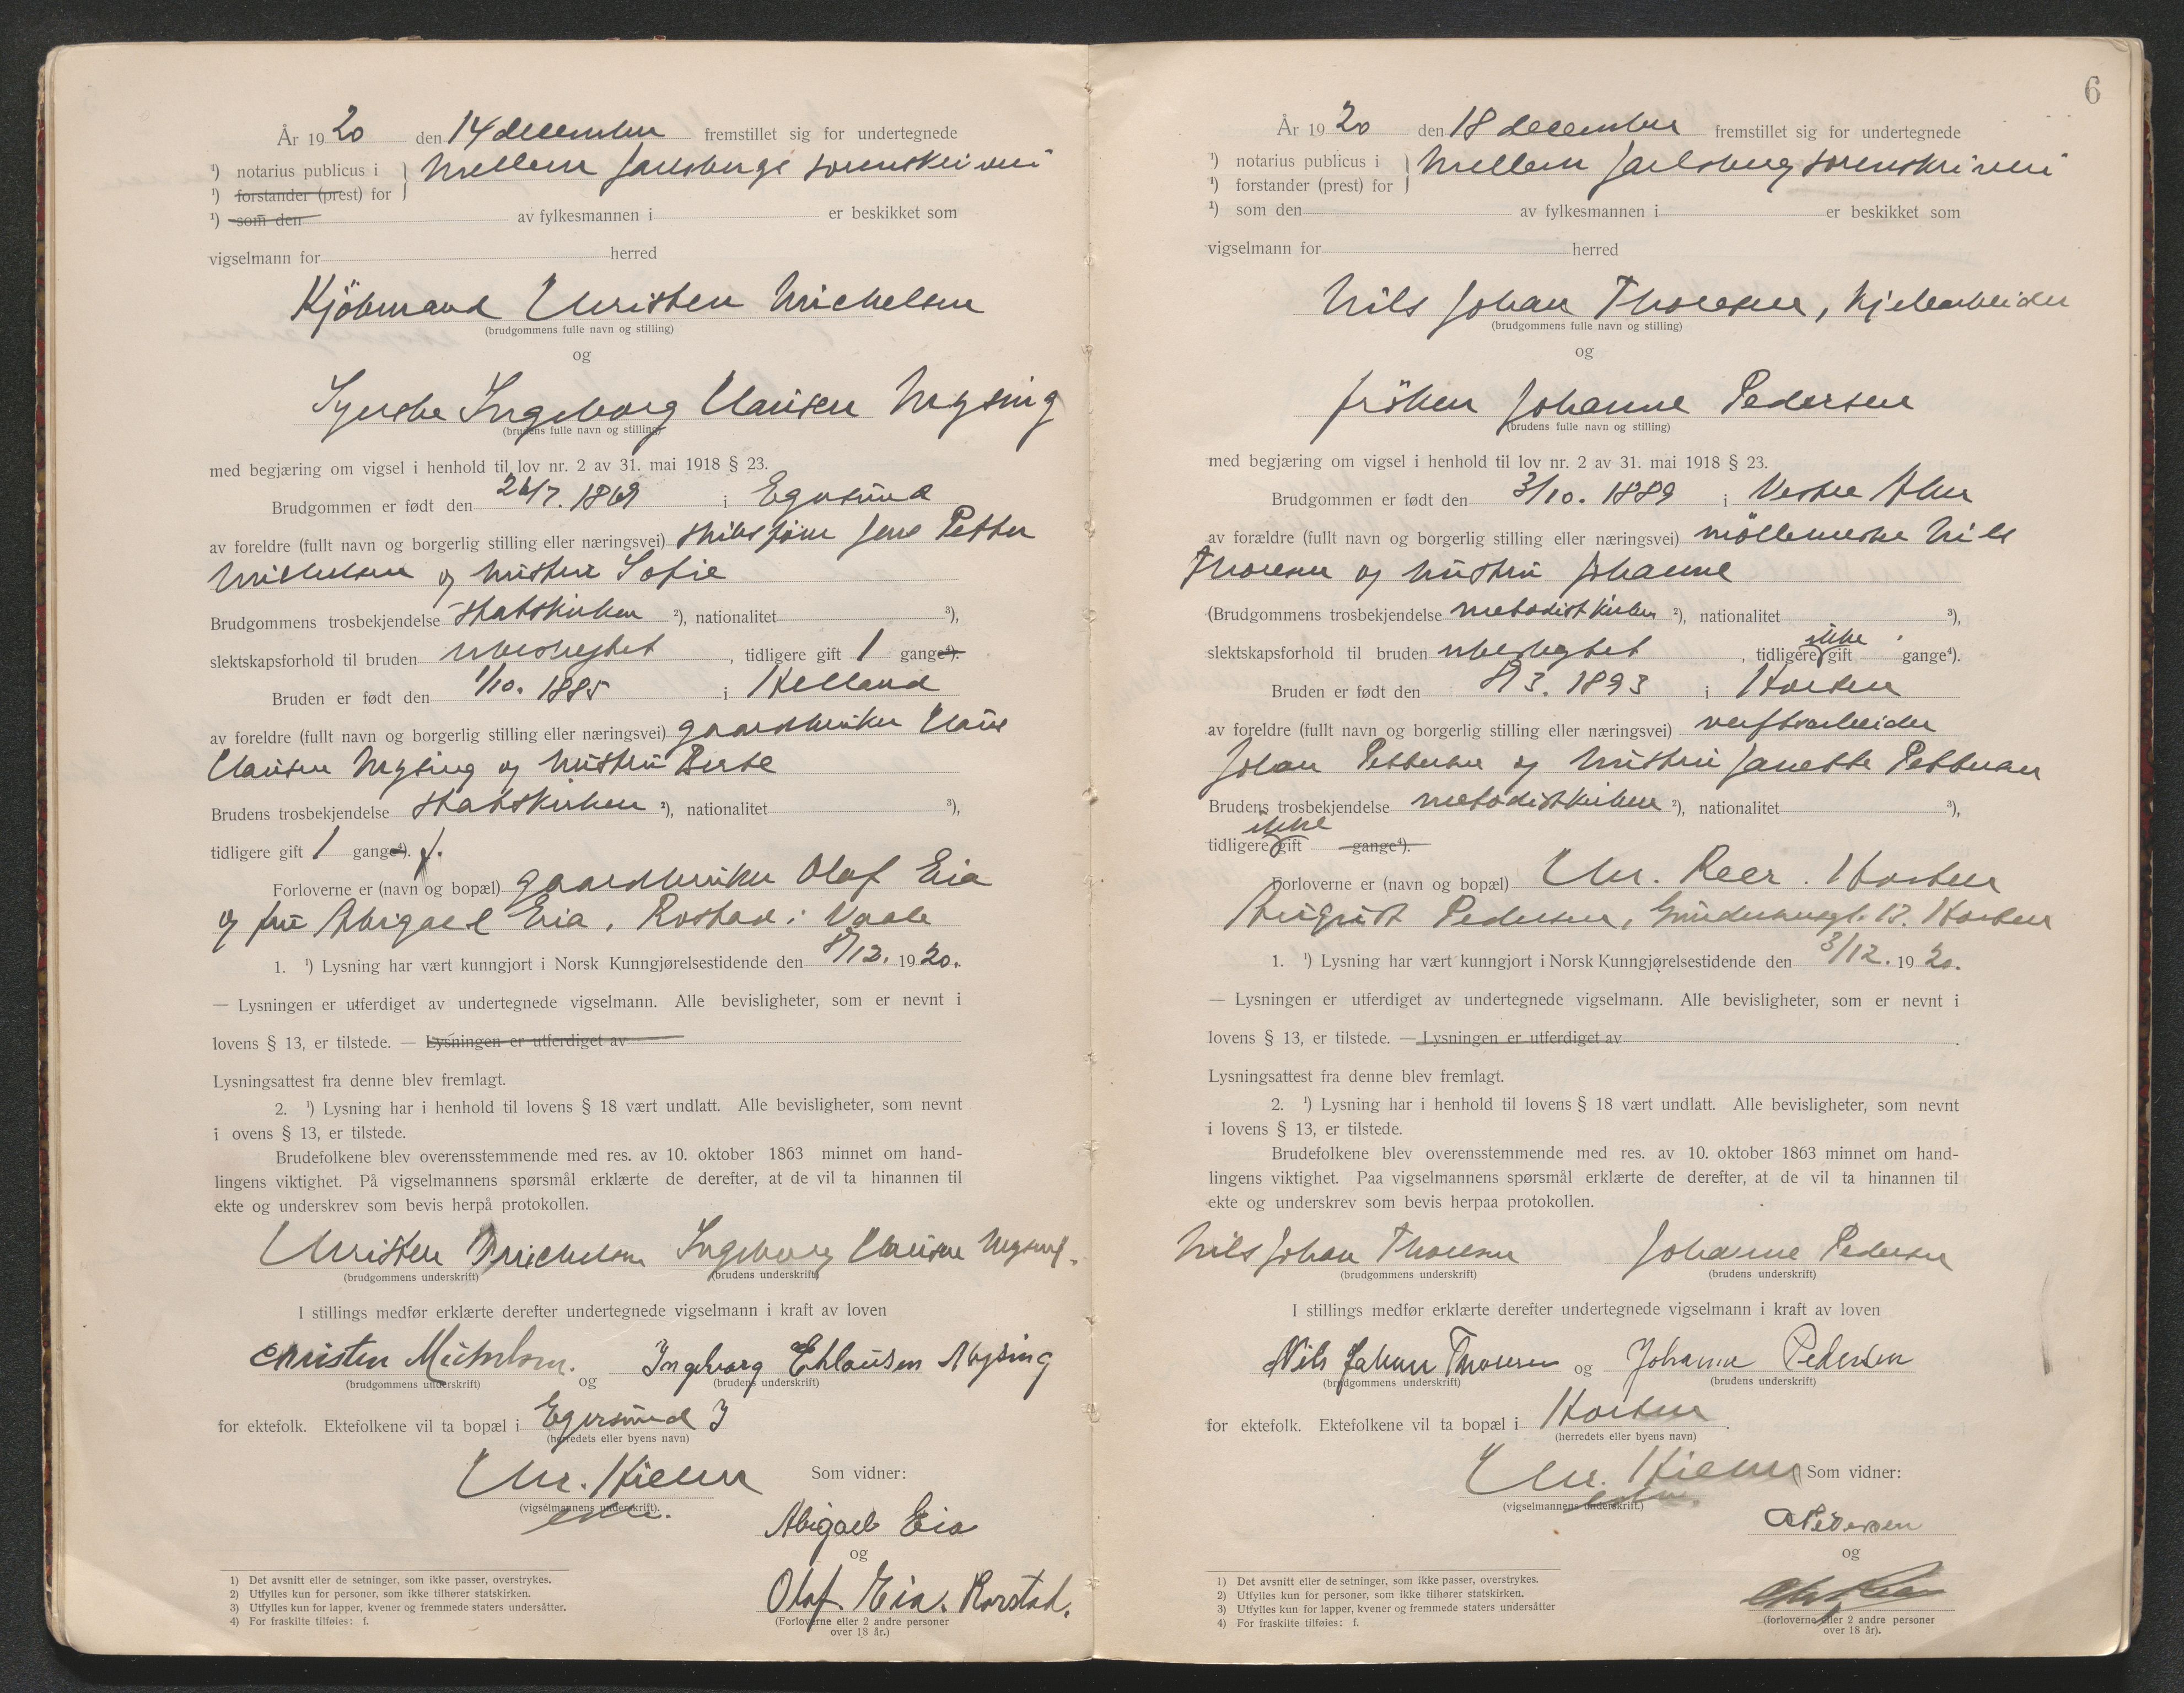 År 1920 den 14 december fremstillet sig for undertegnede
¹) notarius publicus i } Mellem Jarlsbergs sorenskriveri
¹) forstander (prest) for
¹) som den av fylkesmannen i er beskikket som
vigselmann for herred
Kjöbmand Christen Michelsen
(brudgommens fulle navn og stilling)
og
Syerske Ingeborg Clausen Mysing
(brudens fulle navn og stilling)
med begjæring om vigsel i henhold til lov nr. 2 av 31. mai 1918 § 23.
Brudgommen er født den 26/7. 1869 i Egersund
av foreldre (fullt navn og borgerlig stilling eller næringsvei) skibsförer Jens Petter
Michelsen og hustru Sofie
Brudgommens trosbekjendelse statskirken ²), nationalitet ³),
slektskapsforhold til bruden ubeslegtet, tidligere gift 1 gange⁴).
Bruden er født den 1/10. 1885 i Helland
av foreldre (fullt navn og borgerlig stilling eller næringsvei) gaardbruker Claus
Clausen Mysing og hustru Berte
Brudens trosbekjendelse statskirken ²), nationalitet ³),
tidligere gift 1 gange⁴). f.
Forloverne er (navn og bopæl) gaardbruker Olaf Eia
og fru Abigael Eia, Rostad i Vaale
1. ¹) Lysning har vært kunngjort i Norsk Kunngjørelsestidende den 8/12. 1920.
— Lysningen er utferdiget av undertegnede vigselmann. Alle bevisligheter, som er nevnt i
lovens § 13, er tilstede. — Lysningen er utferdiget av
Lysningsattest fra denne blev fremlagt.
2. ¹) Lysning har i henhold til lovens § 18 vært undlatt. Alle bevisligheter, som nevnt
i ovens § 13, er tilstede.
Brudefolkene blev overensstemmende med res. av 10. oktober 1863 minnet om hand-
lingens viktighet. På vigselmannens spørsmål erklærte de derefter, at de vil ta hinannen til
ekte og underskrev som bevis herpå protokollen.
Christen Michelsen Ingeborg Clausen Mysing.
(brudgommens underskrift) (brudens underskrift)
I stillings medfør erklærte derefter undertegnede vigselmann i kraft av loven
Christen Michelsen. og Ingeborg Chlausen Mysing
(brudgommens underskrift) (brudens underskrift)
for ektefolk. Ektefolkene vil ta bopæl i Egersund
(herredets eller byens navn)
Chr. Hiem
(vigselmannens underskrift). Som vidner:
Abigael Eia
og
Olaf Eia. Rorstad.
(Forloverne eller 2 andre personer
over 18 år.)
1) Det avsnitt eller de setninger, som ikke passer, overstrykes.
2) Utfylles kun for personer, som ikke tilhører statskirken.
3) Utfylles kun for lapper, kvener og fremmede staters undersåtter.
4) For fraskilte tilføies: f.
6
År 1920 den 18 december fremstillet sig for undertegnede
¹) notarius publicus i } Mellem Jarlsberg sorenskriveri
¹) forstander (prest) for
¹) som den av fylkesmannen i er beskikket som
vigselmann for herred
Nils Johan Thoresen, kjelearbeider
(brudgommens fulle navn og stilling)
og
fröken Johanne Pedersen
(brudens fulle navn og stilling)
med begjæring om vigsel i henhold til lov nr. 2 av 31. mai 1918 § 23.
Brudgommen er født den 3/10. 1889 i Vestre Aker
av forældre (fullt navn og borgerlig stilling eller næringsvei) möllemester Nils
Thoresen og hustru Johanne
(Brudgommens trosbekjendelse metodistkirken ²), nationalitet ³),
slektskapsforhold til bruden ubeslegtet, tidligere ikke gift gange⁴).
Bruden er født den 8/3. 1893 i Horten
av foreldre (fullt navn og borgerlig stilling eller næringsvei) verftsarbeider
Johan Pettersen og hustru Janette Pettersen
Brudens trosbekjendelse metodistkirken ²), nationalitet ³),
tidligere ikke gift gange⁴).
Forloverne er (navn og bopæl) Chr. Reer. Horten
August Pedersen, 13. Horten
1. ¹) Lysning har vært kunngjort i Norsk Kunngjørelsestidende den 3/12. 1920.
— Lysningen er utferdiget av undertegnede vigselmann. Alle bevisligheter, som er nevnt i
lovens § 13, er tilstede. — Lysningen er utferdiget av
Lysningsattest fra denne blev fremlagt.
2. ¹) Lysning har i henhold til lovens § 18 vært undlatt. Alle bevisligheter, som nevnt
i lovens § 13, er tilstede.
Brudefolkene blev overensstemmende med res. av 10. oktober 1863 minnet om hand-
lingens viktighet. Paa vigselmannens spørsmål erklærte de derefter, at de vil ta hinannen til
ekte og underskrev som bevis herpaa protokollen.
Nils Johan Thoresen Johanne Pedersen
(brudgommens underskrift) (brudens underskrift)
I stillings medfør erklærte derefter undertegnede vigselmann i kraft av loven
Nils Johan Thoresen og Johanne Pedersen
(brudgommens underskrift) (brudens underskrift)
for ektefolk. Ektefolkene vil ta bopæl i Horten.
(herredets eller byens navn)
Chr. Hiem Som vidner:
(vigselmannens underskrift.)
A Pedersen
og
(forloverne eller 2 andre personer
over 18 år).
1) Det avsnitt eller de setninger, som ikke passer, overstrykes.
2) Utfylles kun for personer, som ikke tilhører statskirken.
3) Utfylles kun for lapper, kvener og fremmede staters undersåtter
4) For fraskilte tilføies: f.